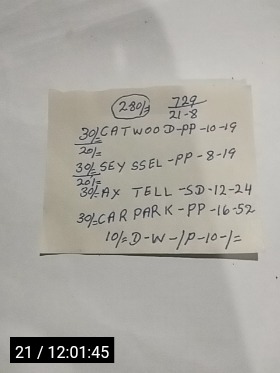 280/= 729
21-8
30/= CATWOOD-PP-10-19
20/=
30/= SEYSSEL-PP-8-19
20/=
30/= AX TELL-SD-12-24
30/= CAR PARK-PP-16-52
10/= D-W-/P-10-/=
21 / 12:01:45